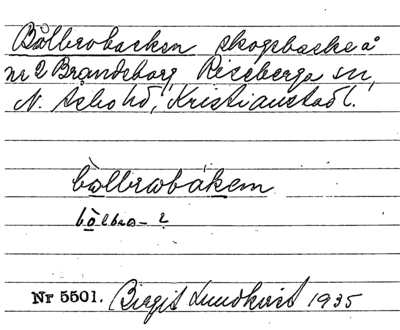 Bålbrobacken skogsbacke å
nr 2 Brandsborg, Riseberga sn,
N. Åsbo hd, Kristianstad l.
bålbrobákem
bålbro- ?
Nr 5501. Birgit Lundkvist 1935